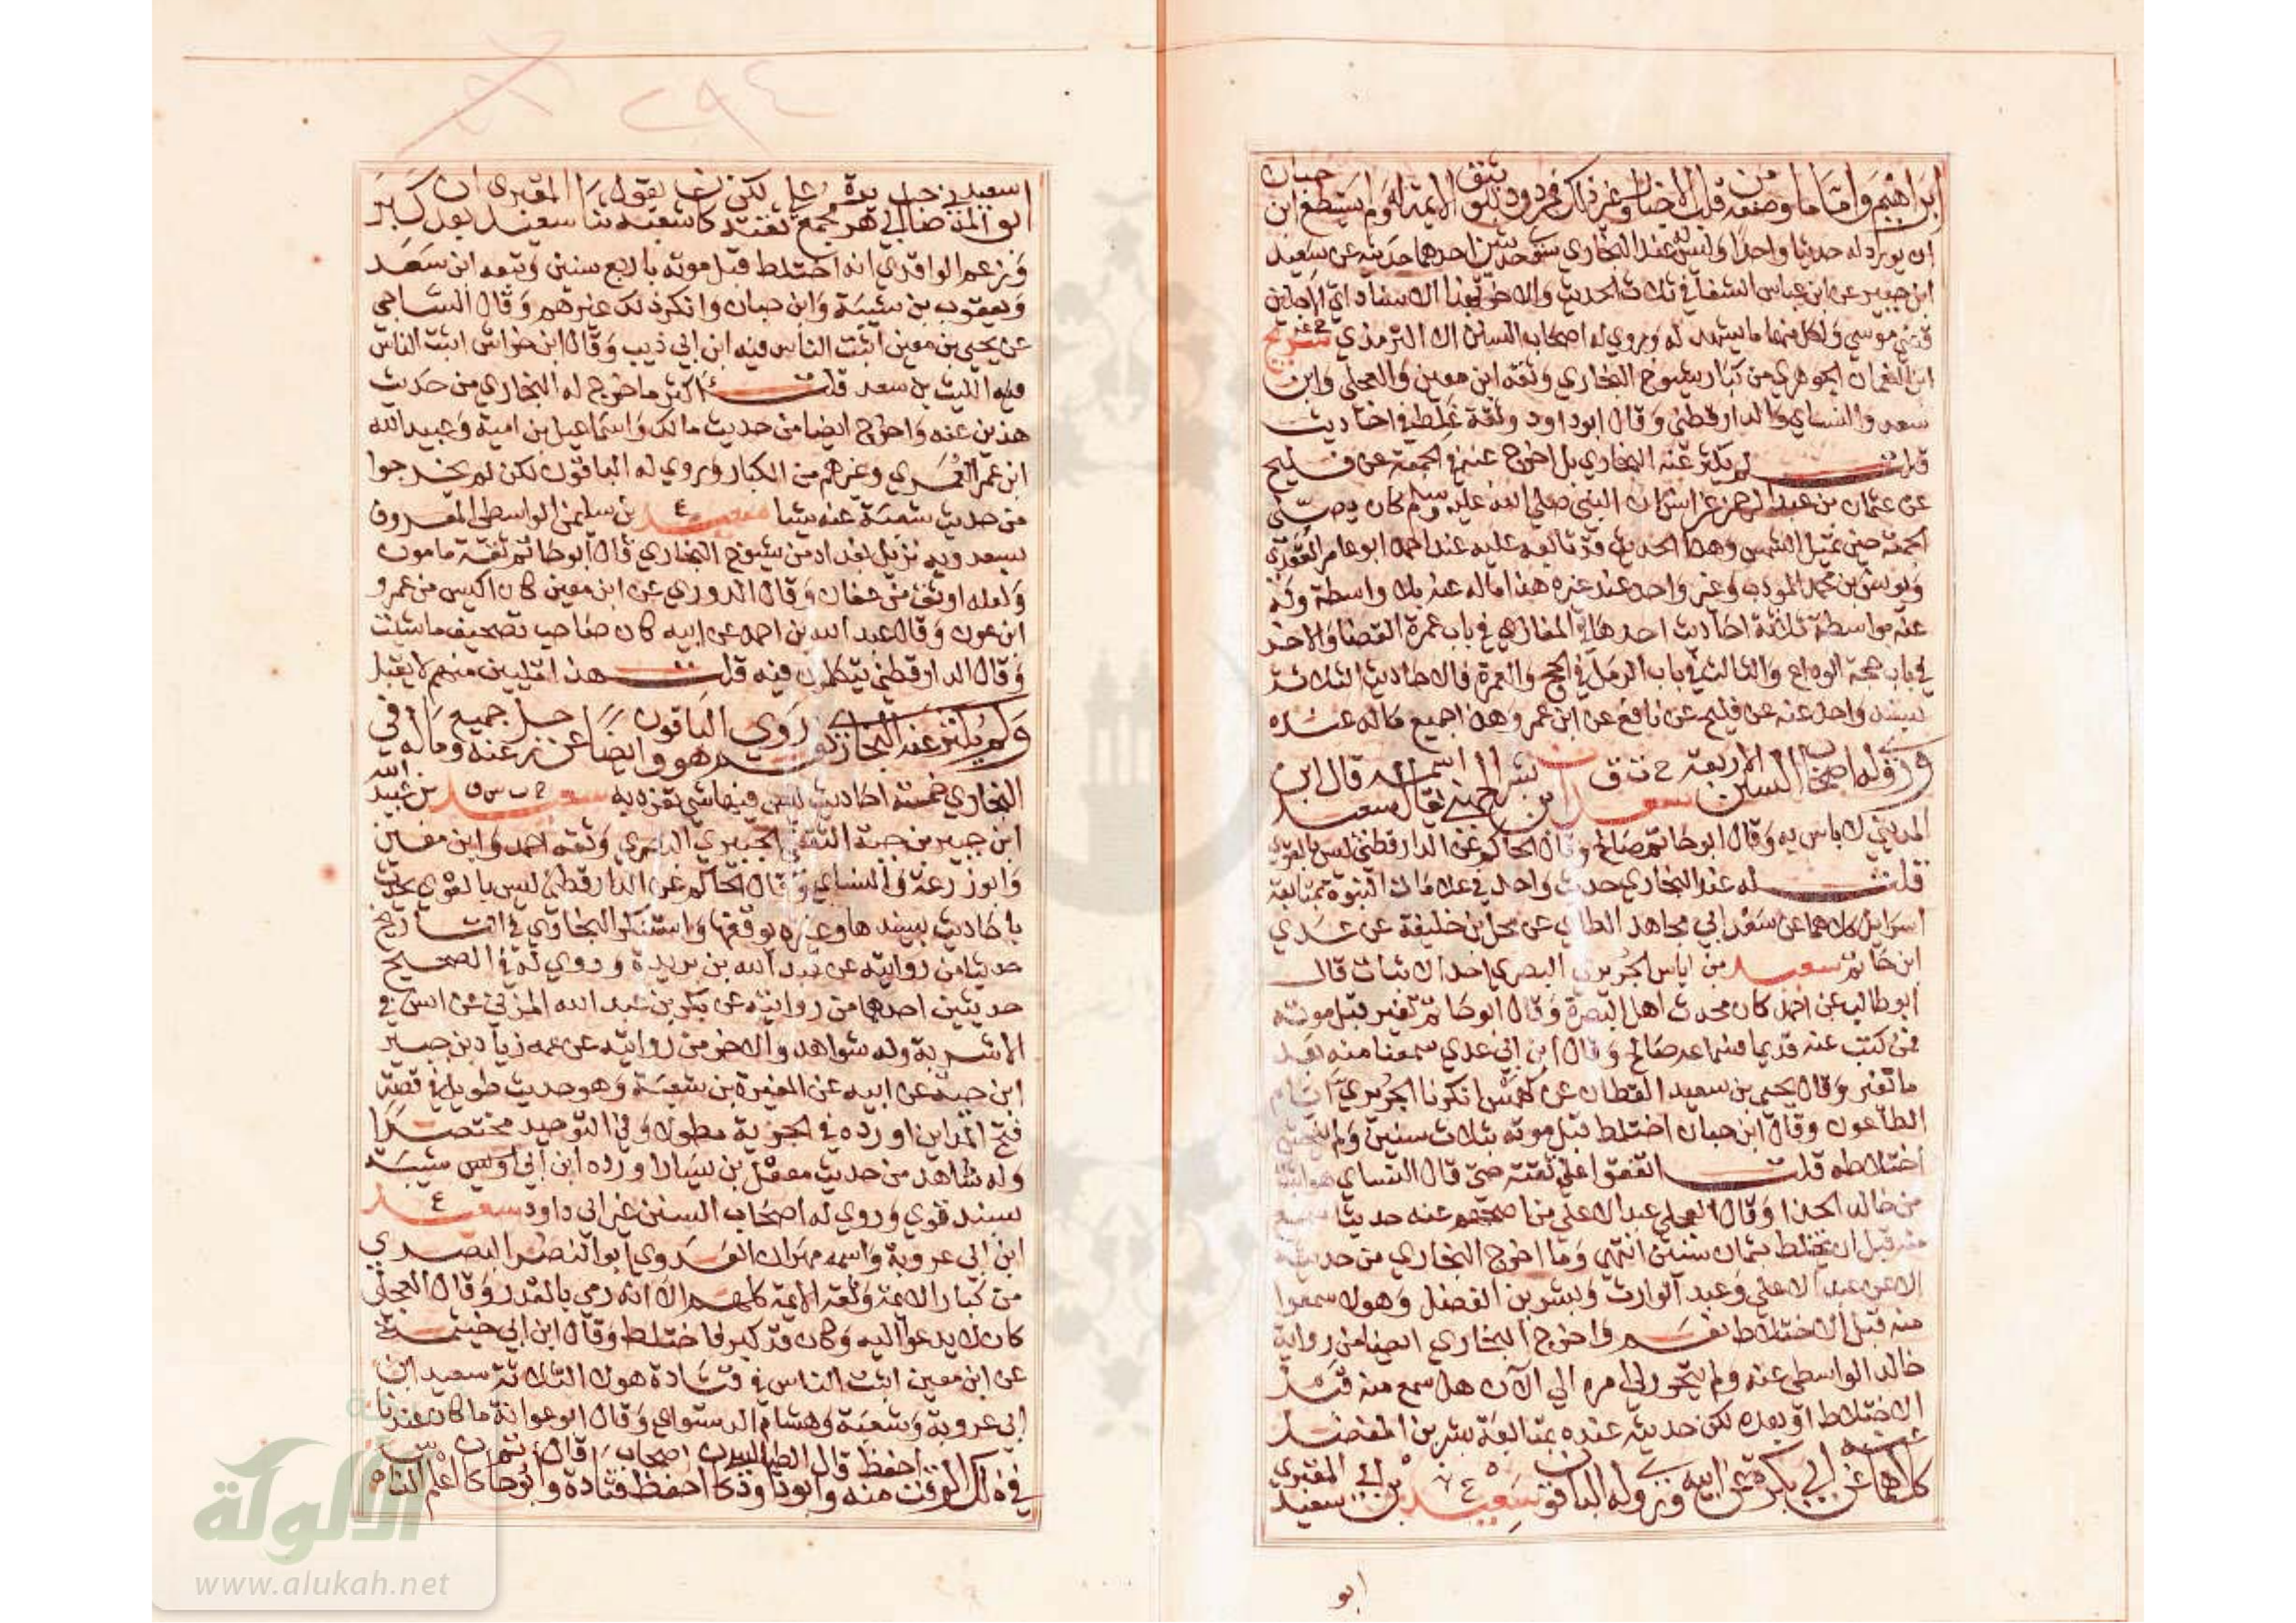 ابراهيم واما ما وصفه من قلب الاخبار وغير ذلك فمردود بتوثيق الايمة له ولم يستطع ابن حبان
ان يورد له حديثا واحدا وليس له عند البخاري سوى حديثين احدهما حديثه عن سعيد
ابن جبير عن ابن عباس الشفا في ثلاث الحديث والاخر بهذا الاسناد اي الاجلين
قضى موسى ولكل منهما ما يشهد له وروي له اصحاب السنن الا الترمذي سريج
ابن النعمان الجوهري من كبار شيوخ البخاري وثقه ابن معين والعجلي وابن
سعد والنساي والدارقطني وقال ابو داود ثقة غلط في احاديث
قلت لم يكثر عنه البخاري بل اخرج عنه في الجمعة عن فليح
عن عثمان بن عبد الرحمن عن انس ان النبي صلى الله عليه وسلم كان يصلي
الجمعة حين تميل الشمس وهذا الحديث قد تابعه عليه عند احمد ابو عامر العقدي
ويونس بن محمد المودب وغير واحد عند غيره هذا ما له عنه بلا واسطة وله
عنه بواسطة ثلاثة احاديث احدها في المغازي في باب عمرة القضا والاخر
في باب حجة الوداع والثالث في باب الرمل في الحج والعمرة فالاحاديث الثلاثة
بسند واحد عنه عن فليح عن نافع عن ابن عمر وهذا جميع ما له عنده
وروى له اصحاب السنن الاربعة خ ت ق سعد ابن بشر الجهني يقال اسمه سعيد قال ابن
المديني لا باس به وقال ابو حاتم صالح وقال الحاكم عن الدارقطني ليس بالقوي
قلت له عند البخاري حديث واحد في علامات النبوة بمتابعة
اسرائيل كلاهما عن سعد ابي مجاهد الطاي عن محل بن خليفة عن عدي
ابن حاتم سعيد بن اياس الجريري البصري احد الاثبات قال
ابو طالب عن احمد كان محدث اهل البصرة وقال ابو حاتم تغير قبل موته
فمن كتب عنه قديما فسماعه صالح وقال ابن ابي عدي سمعنا منه بعد
ما تغير وقال يحيى بن سعيد القطان عن كهمس انكرنا الجريري ايام
الطاعون وقال ابن حبان اختلط قبل موته بثلاث سنين ولم يفحش
اختلاطه قلت اتفقوا على ثقته حتى قال النساي هو اثبت
من خالد الحذا وقال العجلي عبد الاعلى من اصحهم عنه حديثا سمع
منه قبل ان يختلط بثمان سنين انتهى وما اخرج البخاري من حديثه
الا عن عبد الاعلى وعبد الوارث وبشر بن المفضل وهولا سمعوا
منه قبل الاختلاط نعم واخرج البخاري ايضا من رواية
خالد الواسطي عنه ولم يتحرر لي امره الى الآن هل سمع منه قبل
الاختلاط او بعده لكن حديثه عنده بمتابعة بشر بن المفضل
كلاهما عنه عن ابن ابي بكرة عن ابيه وروى له الباقون ه ع سعيد بن ابي سعيد المقبري
ابو
ابو سعيد المدني صاحب ابي هريرة مجمع على ثقته لكن كان شعبة يقول ثنا سعيد المقبري بعد ان كبر
وزعم الواقدي انه اختلط قبل موته باربع سنين وتبعه ابن سعد
ويعقوب بن شيبة وابن حبان وانكر ذلك غيرهم وقال الساجي
عن يحيى بن معين اثبت الناس فيه ابن ابي ذيب وقال ابن خراش اثبت الناس
فيه الليث بن سعد قلت اكثر ما خرج له البخاري من حديث
هذين عنه واخرج ايضا من حديث مالك واسماعيل بن امية وعبيد الله
ابن عمر العمري وغيرهم من الكبار وروي له الباقون لكن لم يخرجوا
من حديث شعبة عنه شيا ع سعيد بن سليمن الواسطي المعروف
بسعدويه نزيل بغداد من شيوخ البخاري قال ابو حاتم ثقة مامون
ولعله اوثق من عفان وقال الدوري عن ابن معين كان اكيس من عمرو
ابن عون وقال عبد الله بن احمد عن ابيه كان صاحب تصحيف ما شيت
وقال الدارقطني يتكلمون فيه قلت هذا تليين مبهم لا يقبل
ولم يكثر عنه البخاري نعم روى هو والباقون ايضا عن رجل عنه وجميع ما له في
البخاري خمسة احاديث ليس فيها شي تفرد به خ ت س ق سعيد بن عبيد الله
ابن جبير بن حية الثقفي الجبيري البصري وثقه احمد وابن معين
وابو زرعة والنساي وقال الحاكم عن الدارقطني ليس بالقوي يحدث
باحاديث يسندها وغيره يوقفها واستنكر البخاري في التاريخ
حديثا من روايته عن عبد الله بن بريدة وروي له في الصحيح
حديثين احدهما من روايته عن بكر بن عبد الله المزني عن انس في
الاشربة وله شواهد والاخر من روايته عن عمه زياد بن جبير
ابن حية عن ابيه عن المغيرة بن شعبة وهو حديث طويل في قصة
فتح المداين اورده في الجزية مطولا وفي التوحيد مختصرا
وله شاهد من حديث معقل بن يسار اورده ابن ابي شيبة
بسند قوي وروي له اصحاب السنن غير ابي داود ع سعيد
ابن ابي عروبة واسمه مهران العدوي ابو النضر البصري
من كبار الايمة وثقه الايمة كلهم الا انه رمي بالقدر وقال العجلي
كان لا يدعوا اليه وكان قد كبر فاختلط وقال ابن ابي خيثمة
عن ابن معين اثبت الناس في قتادة هولا الثلاثة سعيد ابن
ابي عروبة وشعبة وهشام الدستواي وقال ابو عوانة ما كان عندنا
في ذلك الوقت احفظ منه وقال ابو داود الطيالسي كان احفظ اصحاب قتادة وقال ابو حاتم كان اعلم الناس
الألوكة
www.alukah.net